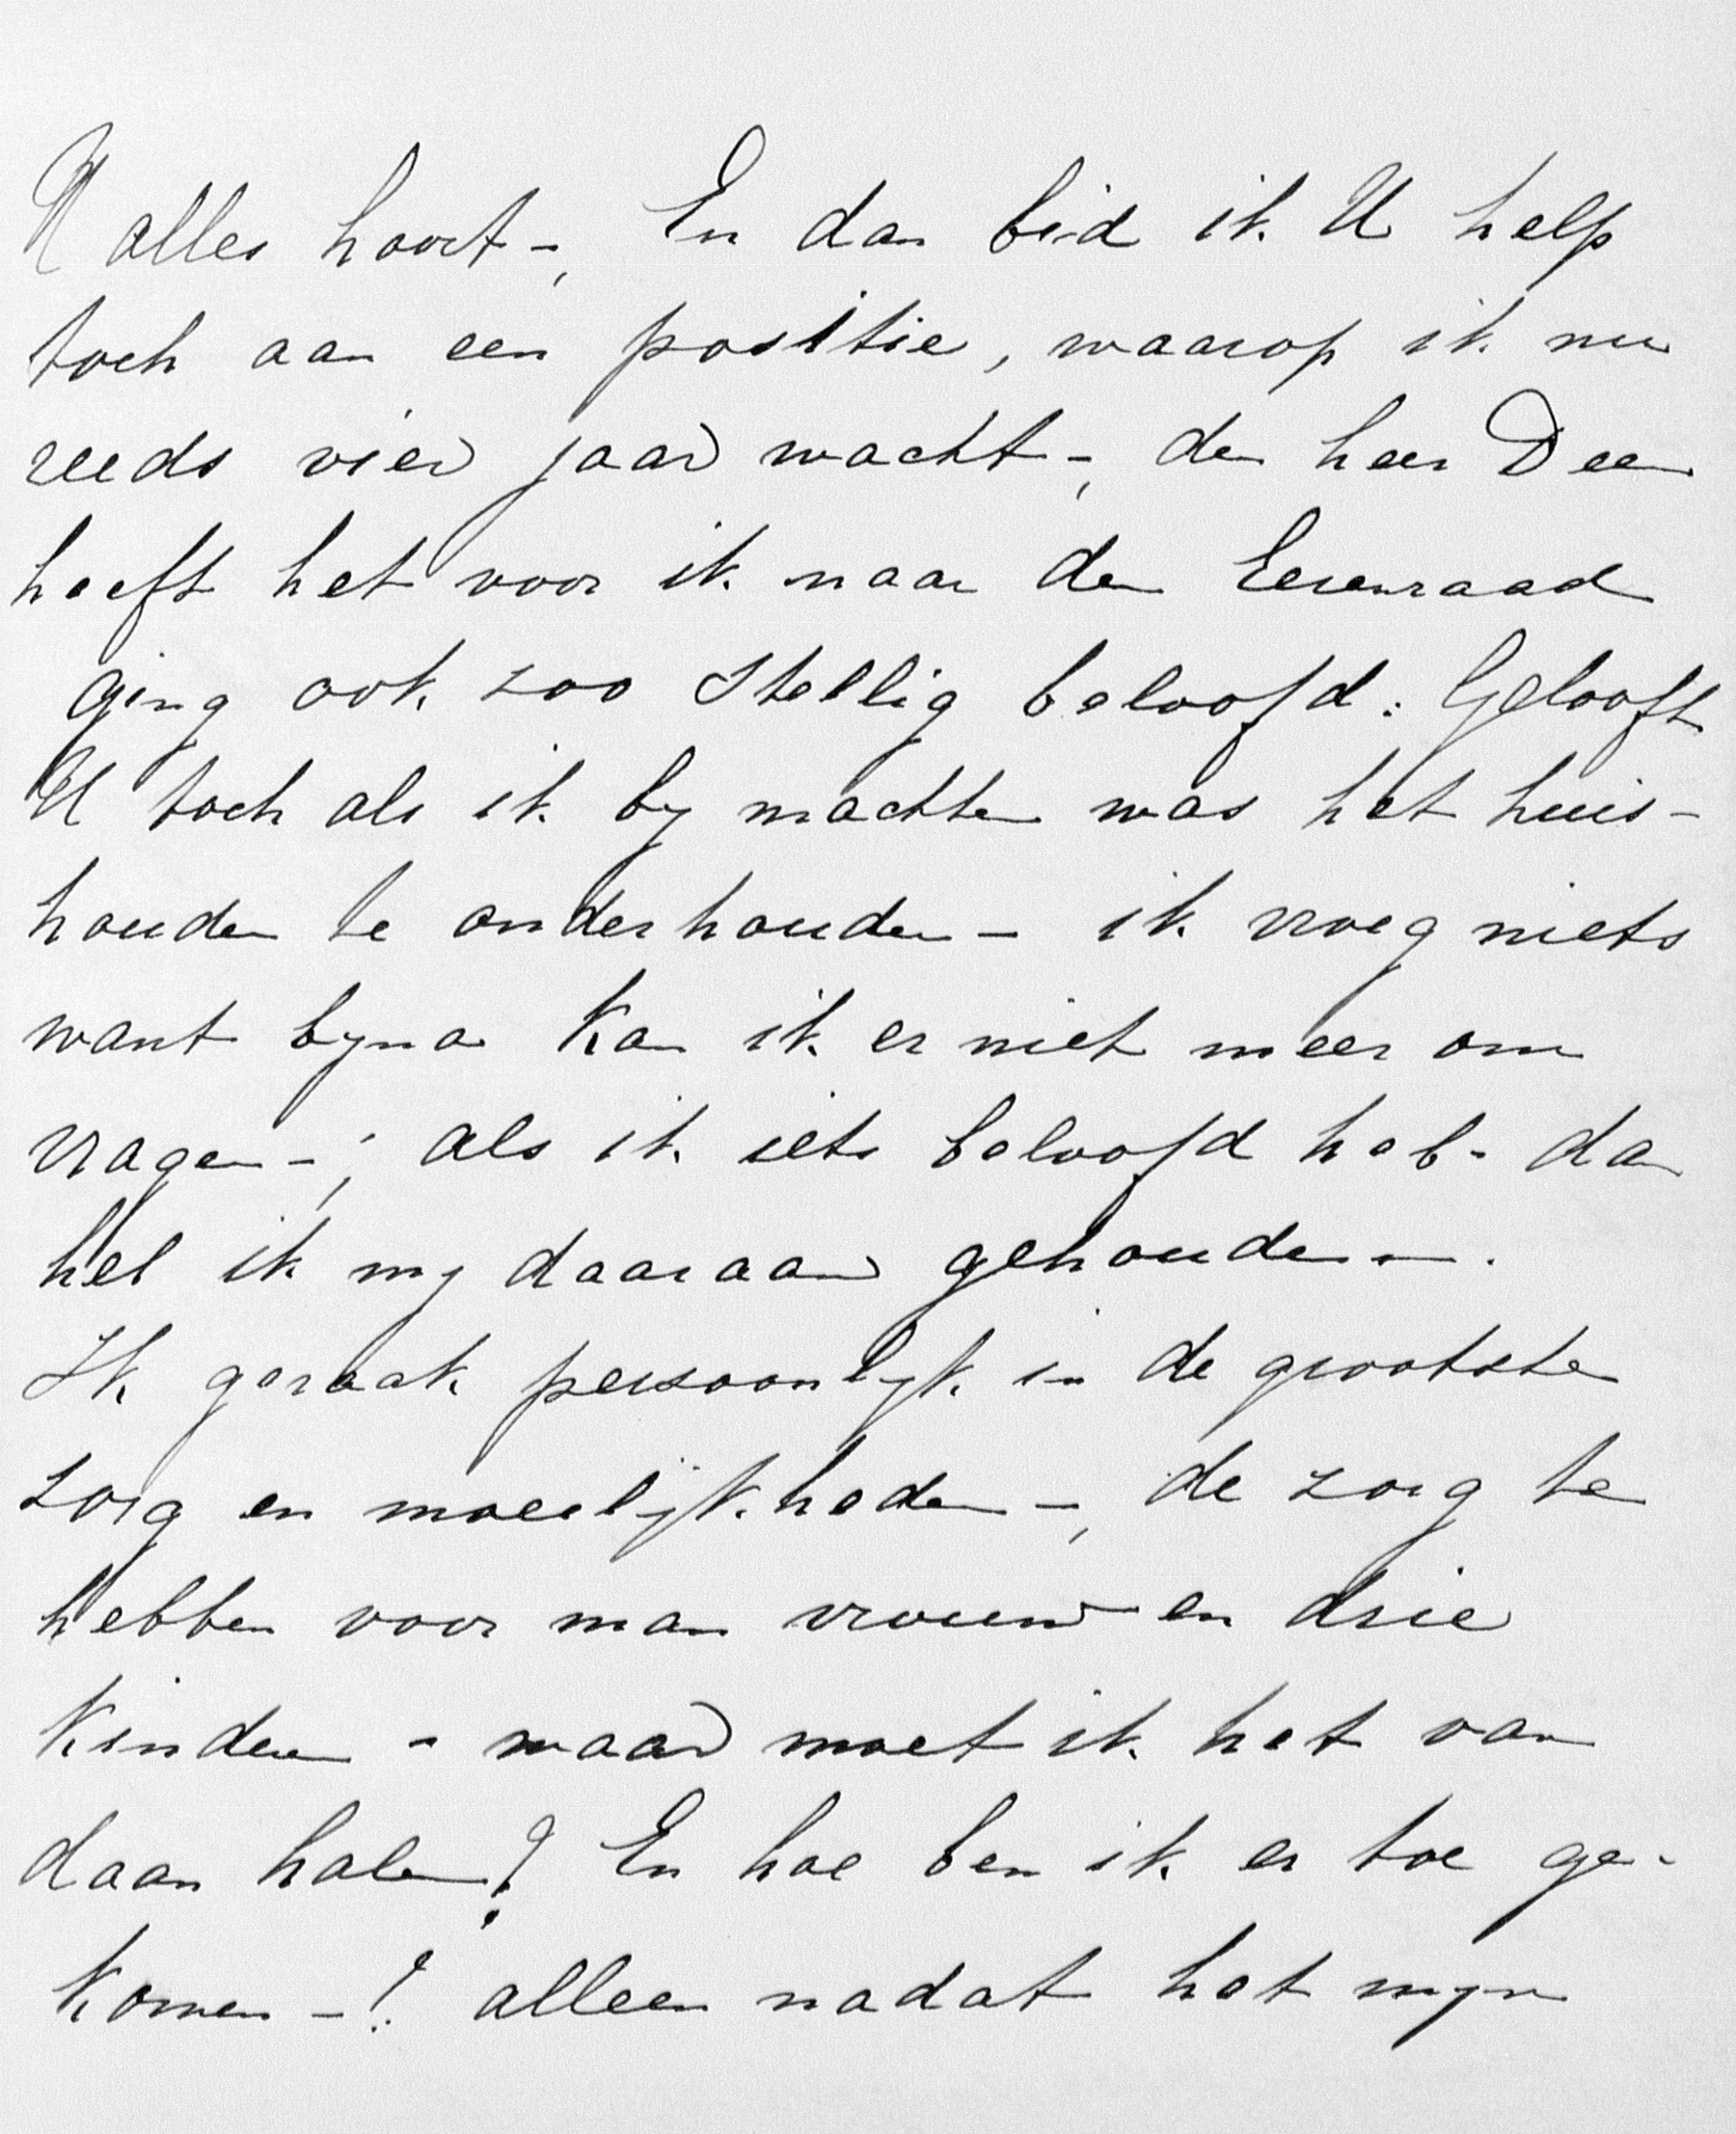 U alles hoort -, En dan bid ik U help
toch aan een positie, waarop ik nu
reeds vier jaar wacht -, de heer Deen
heeft het voor ik naar den Eerenraad
ging ook zoo stellig beloofd: Gelooft
U toch als ik by machte was het huis-
houden te onderhouden - ik vroeg niets
want byna kan ik er niet meer om
vragen -; als ik iets beloofd heb - dan
heb ik my daaraan gehouden -.
Ik geraak persoonlyk in de grootste
zorg en moeilijkheden -, de zorg te
hebben voor man vrouw en drie
kinderen - waar moet ik het van
daan halen? En hoe ben ik er toe ge-
komen -? alleen nadat het myn